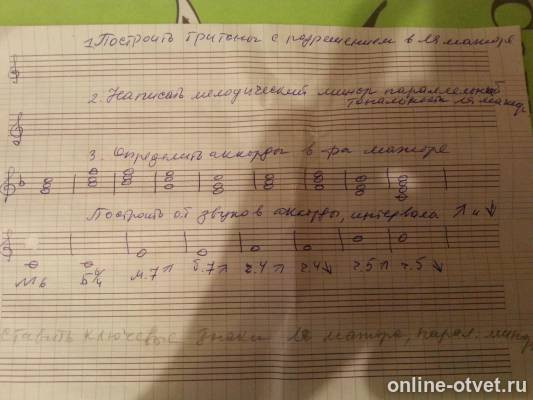 1. Построить тритоны с разрешением в ля мажоре
2. Написать мелодический минор параллельный
тональности ля мажор.
3. Определить аккорды в фа мажоре
Построить от звуков аккорды, интервалы ↗ и ↘
М6 Б6/4 м.7↗ б.7↗ ч.4.↗ ч.4↘ ч.5↗ ч.5↘
ставить ключевые знаки ля мажора, парал. минор
online-otvet.ru